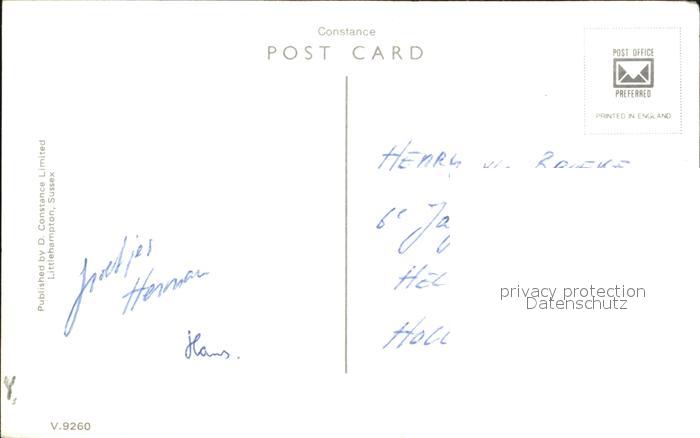 Constance
POST CARD
POST OFFICE
PREFERRED
PRINTED IN ENGLAND
Published by D. Constance Limited
Littlehampton, Sussex
Herman
Hans.
HENRY
6c Ja
HEL
Holl
privacy protection
Datenschutz
V.9260